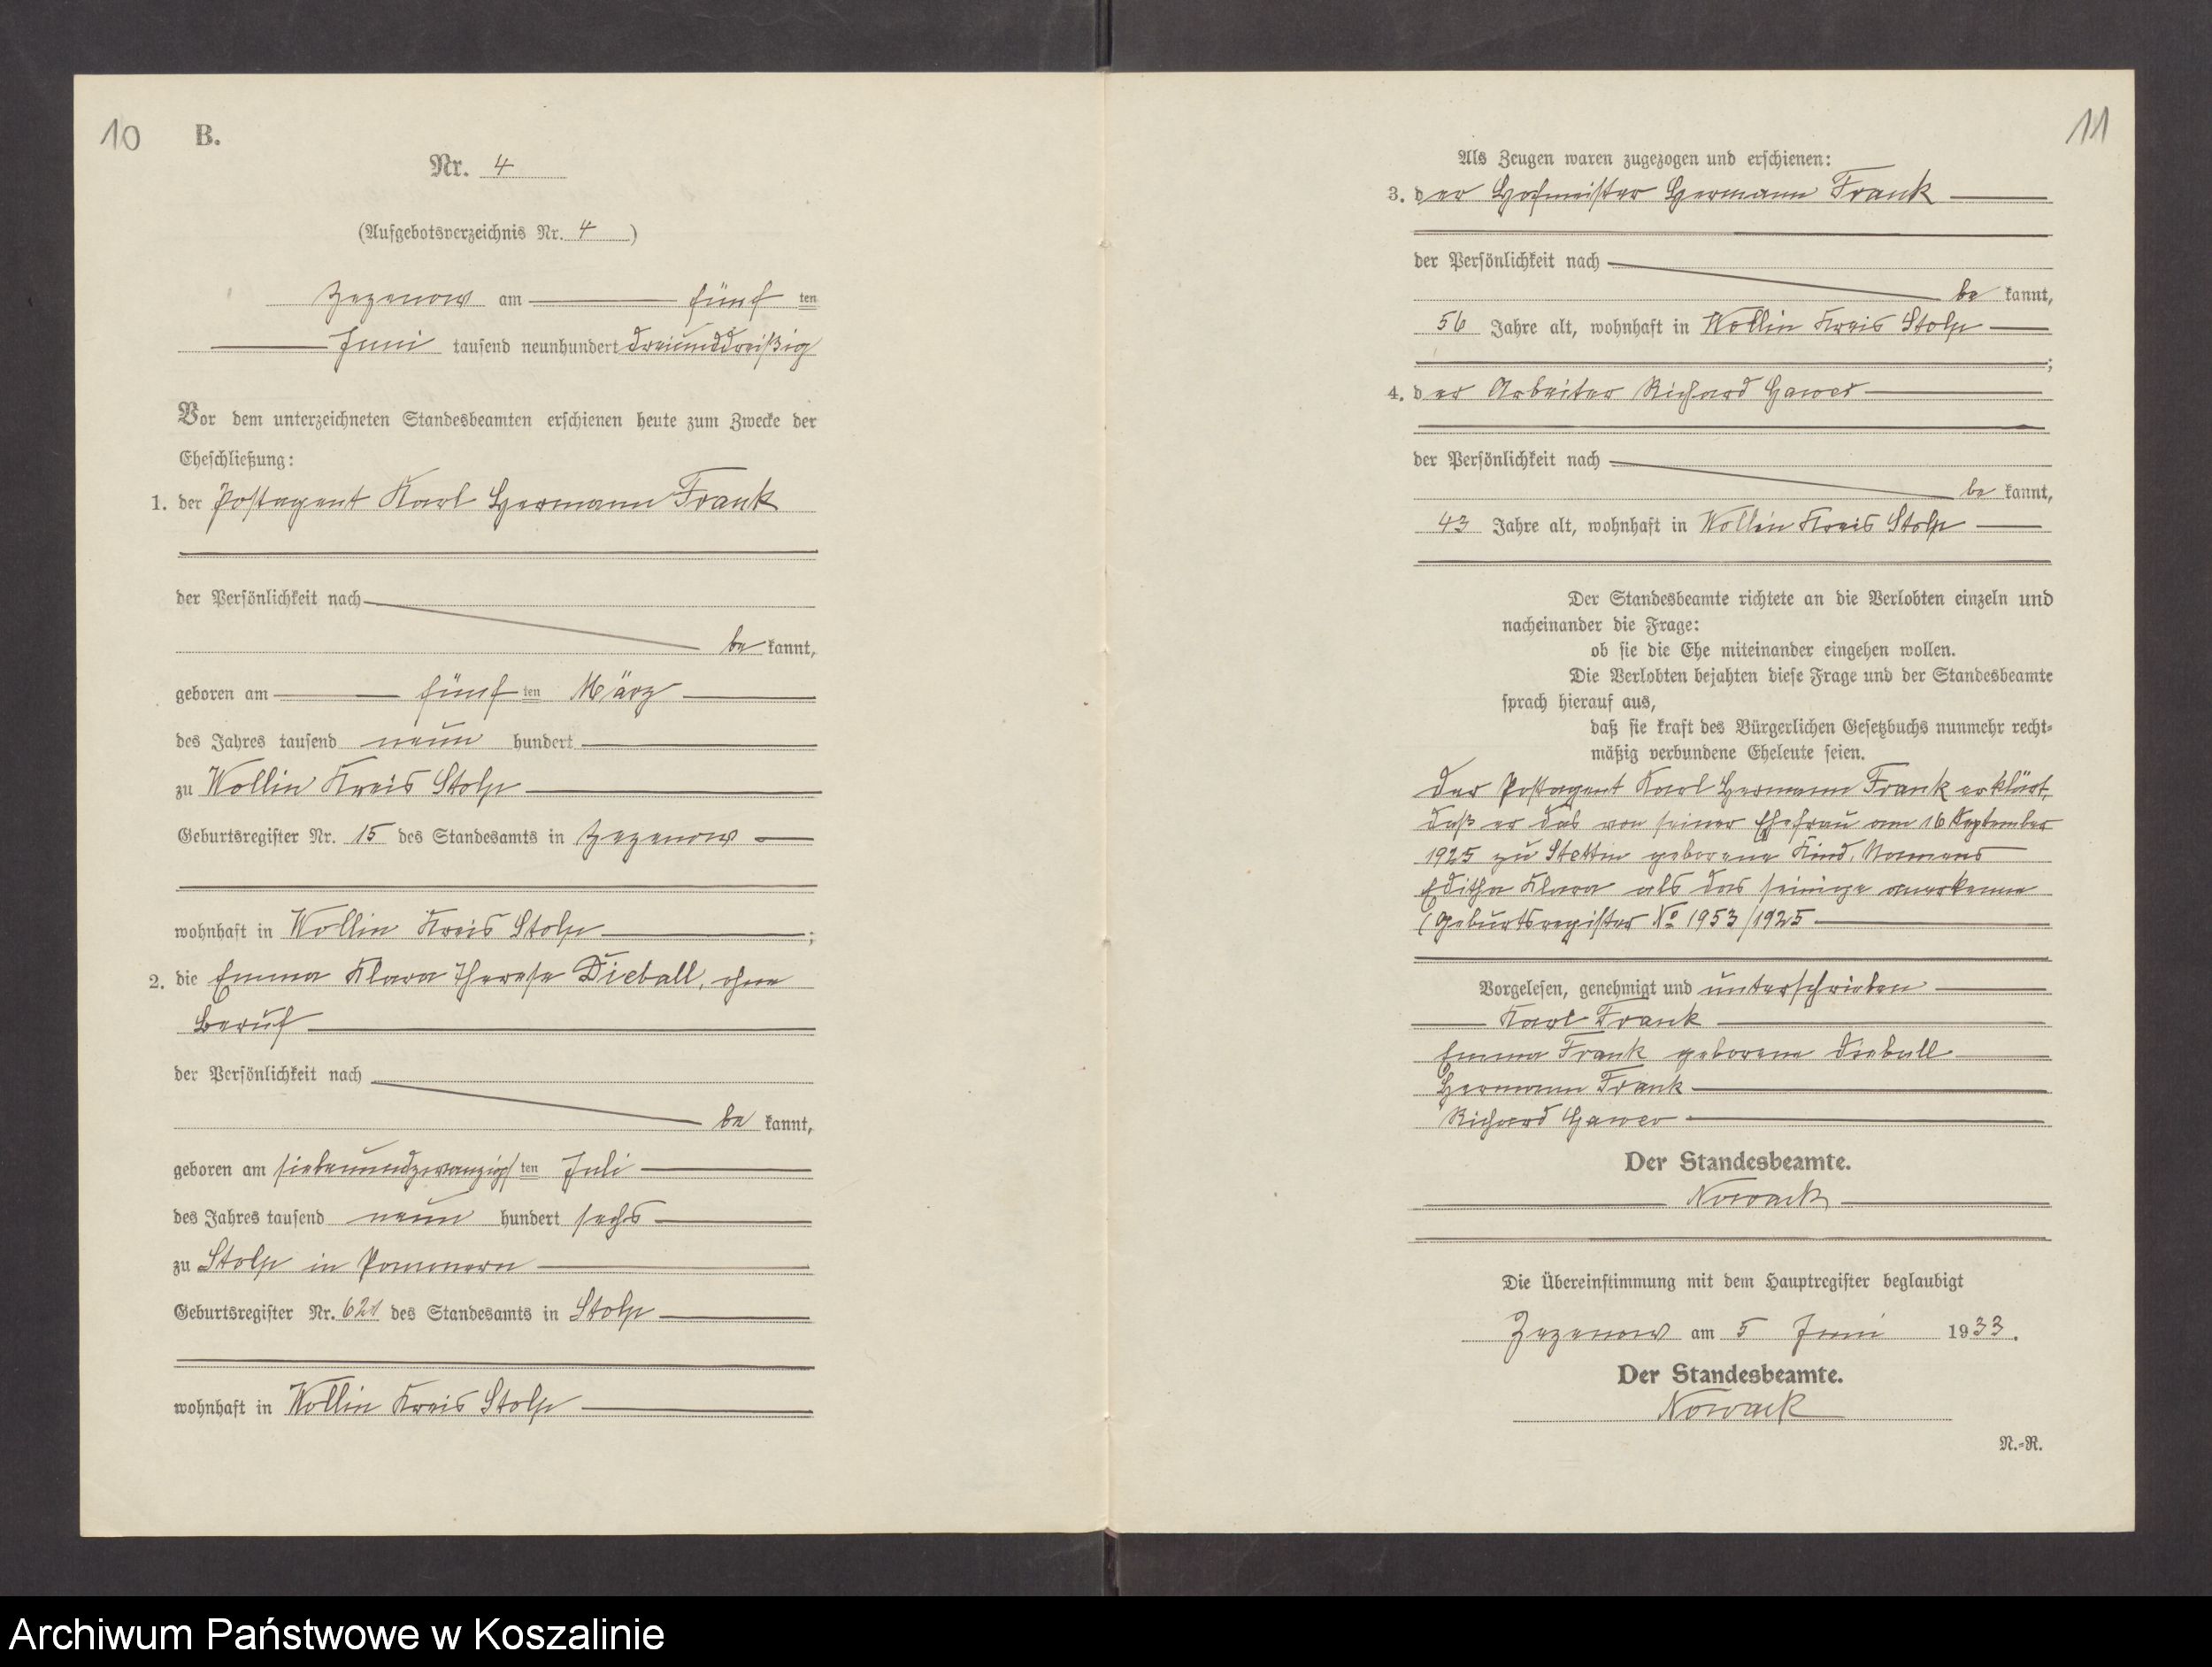 10
B.
Nr. 4
(Aufgebotsverzeichnis Nr. 4)
Zezenow am fünf ten
Juni tausend neunhundert dreiunddreißig
Vor dem unterzeichneten Standesbeamten erschienen heute zum Zwecke der
Eheschließung:
1. der Postagent Karl Hermann Frank
der Persönlichkeit nach
be kannt,
geboren am fünf ten März
des Jahres tausend neun hundert
zu Wollin Kreis Stolp
Geburtsregister Nr. 15 des Standesamts in Zezenow
wohnhaft in Wollin Kreis Stolp ;
2. die Emma Klara Therese Dieball, ohne
Beruf
der Persönlichkeit nach
be kannt,
geboren am siebenundzwanzigs ten Juli
des Jahres tausend neun hundert sechs
zu Stolp in Pommern
Geburtsregister Nr. 621 des Standesamts in Stolp
wohnhaft in Wollin Kreis Stolp
11
Als Zeugen waren zugezogen und erschienen:
3. der Hofmeister Hermann Frank
der Persönlichkeit nach
be kannt,
56 Jahre alt, wohnhaft in Wollin Kreis Stolp
;
4. der Arbeiter Richard Gawer
der Persönlichkeit nach
be kannt,
43 Jahre alt, wohnhaft in Wollin Kreis Stolp
Der Standesbeamte richtete an die Verlobten einzeln und
nacheinander die Frage:
ob sie die Ehe miteinander eingehen wollen.
Die Verlobten bejahten diese Frage und der Standesbeamte
sprach hierauf aus,
daß sie kraft des Bürgerlichen Gesetzbuchs nunmehr recht-
mäßig verbundene Eheleute seien.
Der Postagent Karl Hermann Frank erklärt,
daß er das von seiner Ehefrau am 16 September
1925 zu Stettin geborene Kind, Namens
Editha Klara als das seinige anerkenne
(Geburtsregister No 1953/1925
Vorgelesen, genehmigt und unterschrieben
Karl Frank
Emma Frank geborene Dieball
Hermann Frank
Richard Gawer
Der Standesbeamte.
Nowack
Die Übereinstimmung mit dem Hauptregister beglaubigt
Zezenow am 5 Juni 1933.
Der Standesbeamte.
Nowack
N.-R.
Archiwum Państwowe w Koszalinie